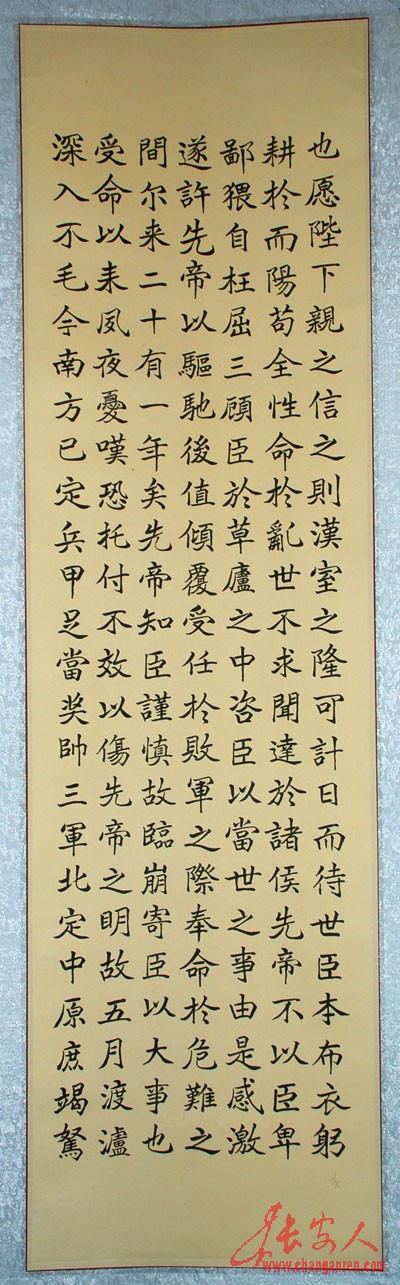 也愿陛下親之信之則漢室之隆可計日而待世臣本布衣躬
耕於而陽苟全性命於亂世不求聞達於諸侯先帝不以臣卑
鄙猥自枉屈三顧臣於草廬之中咨臣以當世之事由是感激
遂許先帝以驅馳後值傾覆受任於敗軍之際奉命於危難之
間尔来二十有一年矣先帝知臣謹慎故臨崩寄臣以大事也
受命以来夙夜憂嘆恐托付不效以傷先帝之明故五月渡瀘
深入不毛今南方已定兵甲足當奖帥三軍北定中原庶竭駑
长安人
www.changanren.com